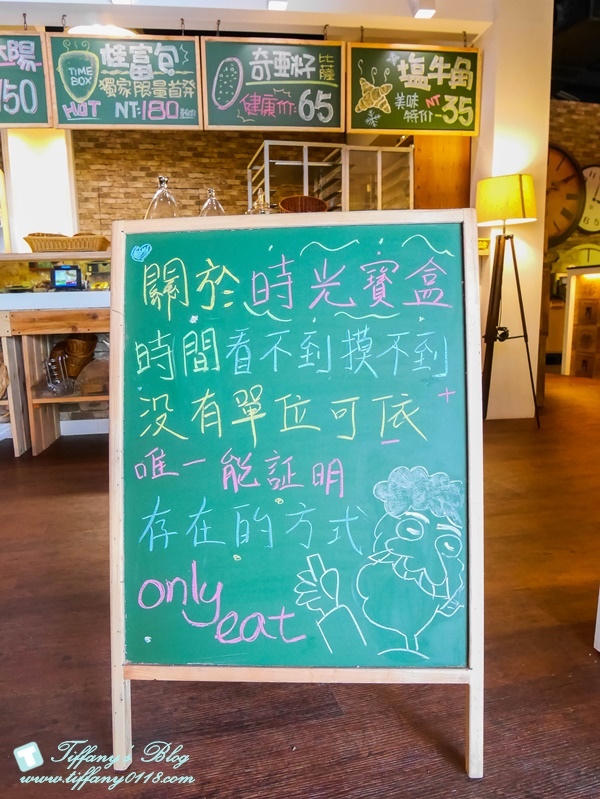 陽
150
TIME
BOX
桂富包
獨家限量首發
HOT NT:180
奇亞籽 比薩
健康价: 65
塩牛角
美味
特价 NT-35
關於時光寶盒
時間看不到摸不到
没有單位可依
唯一能証明
存在的方式
only
eat
Tiffany's Blog
www.tiffany0118.com